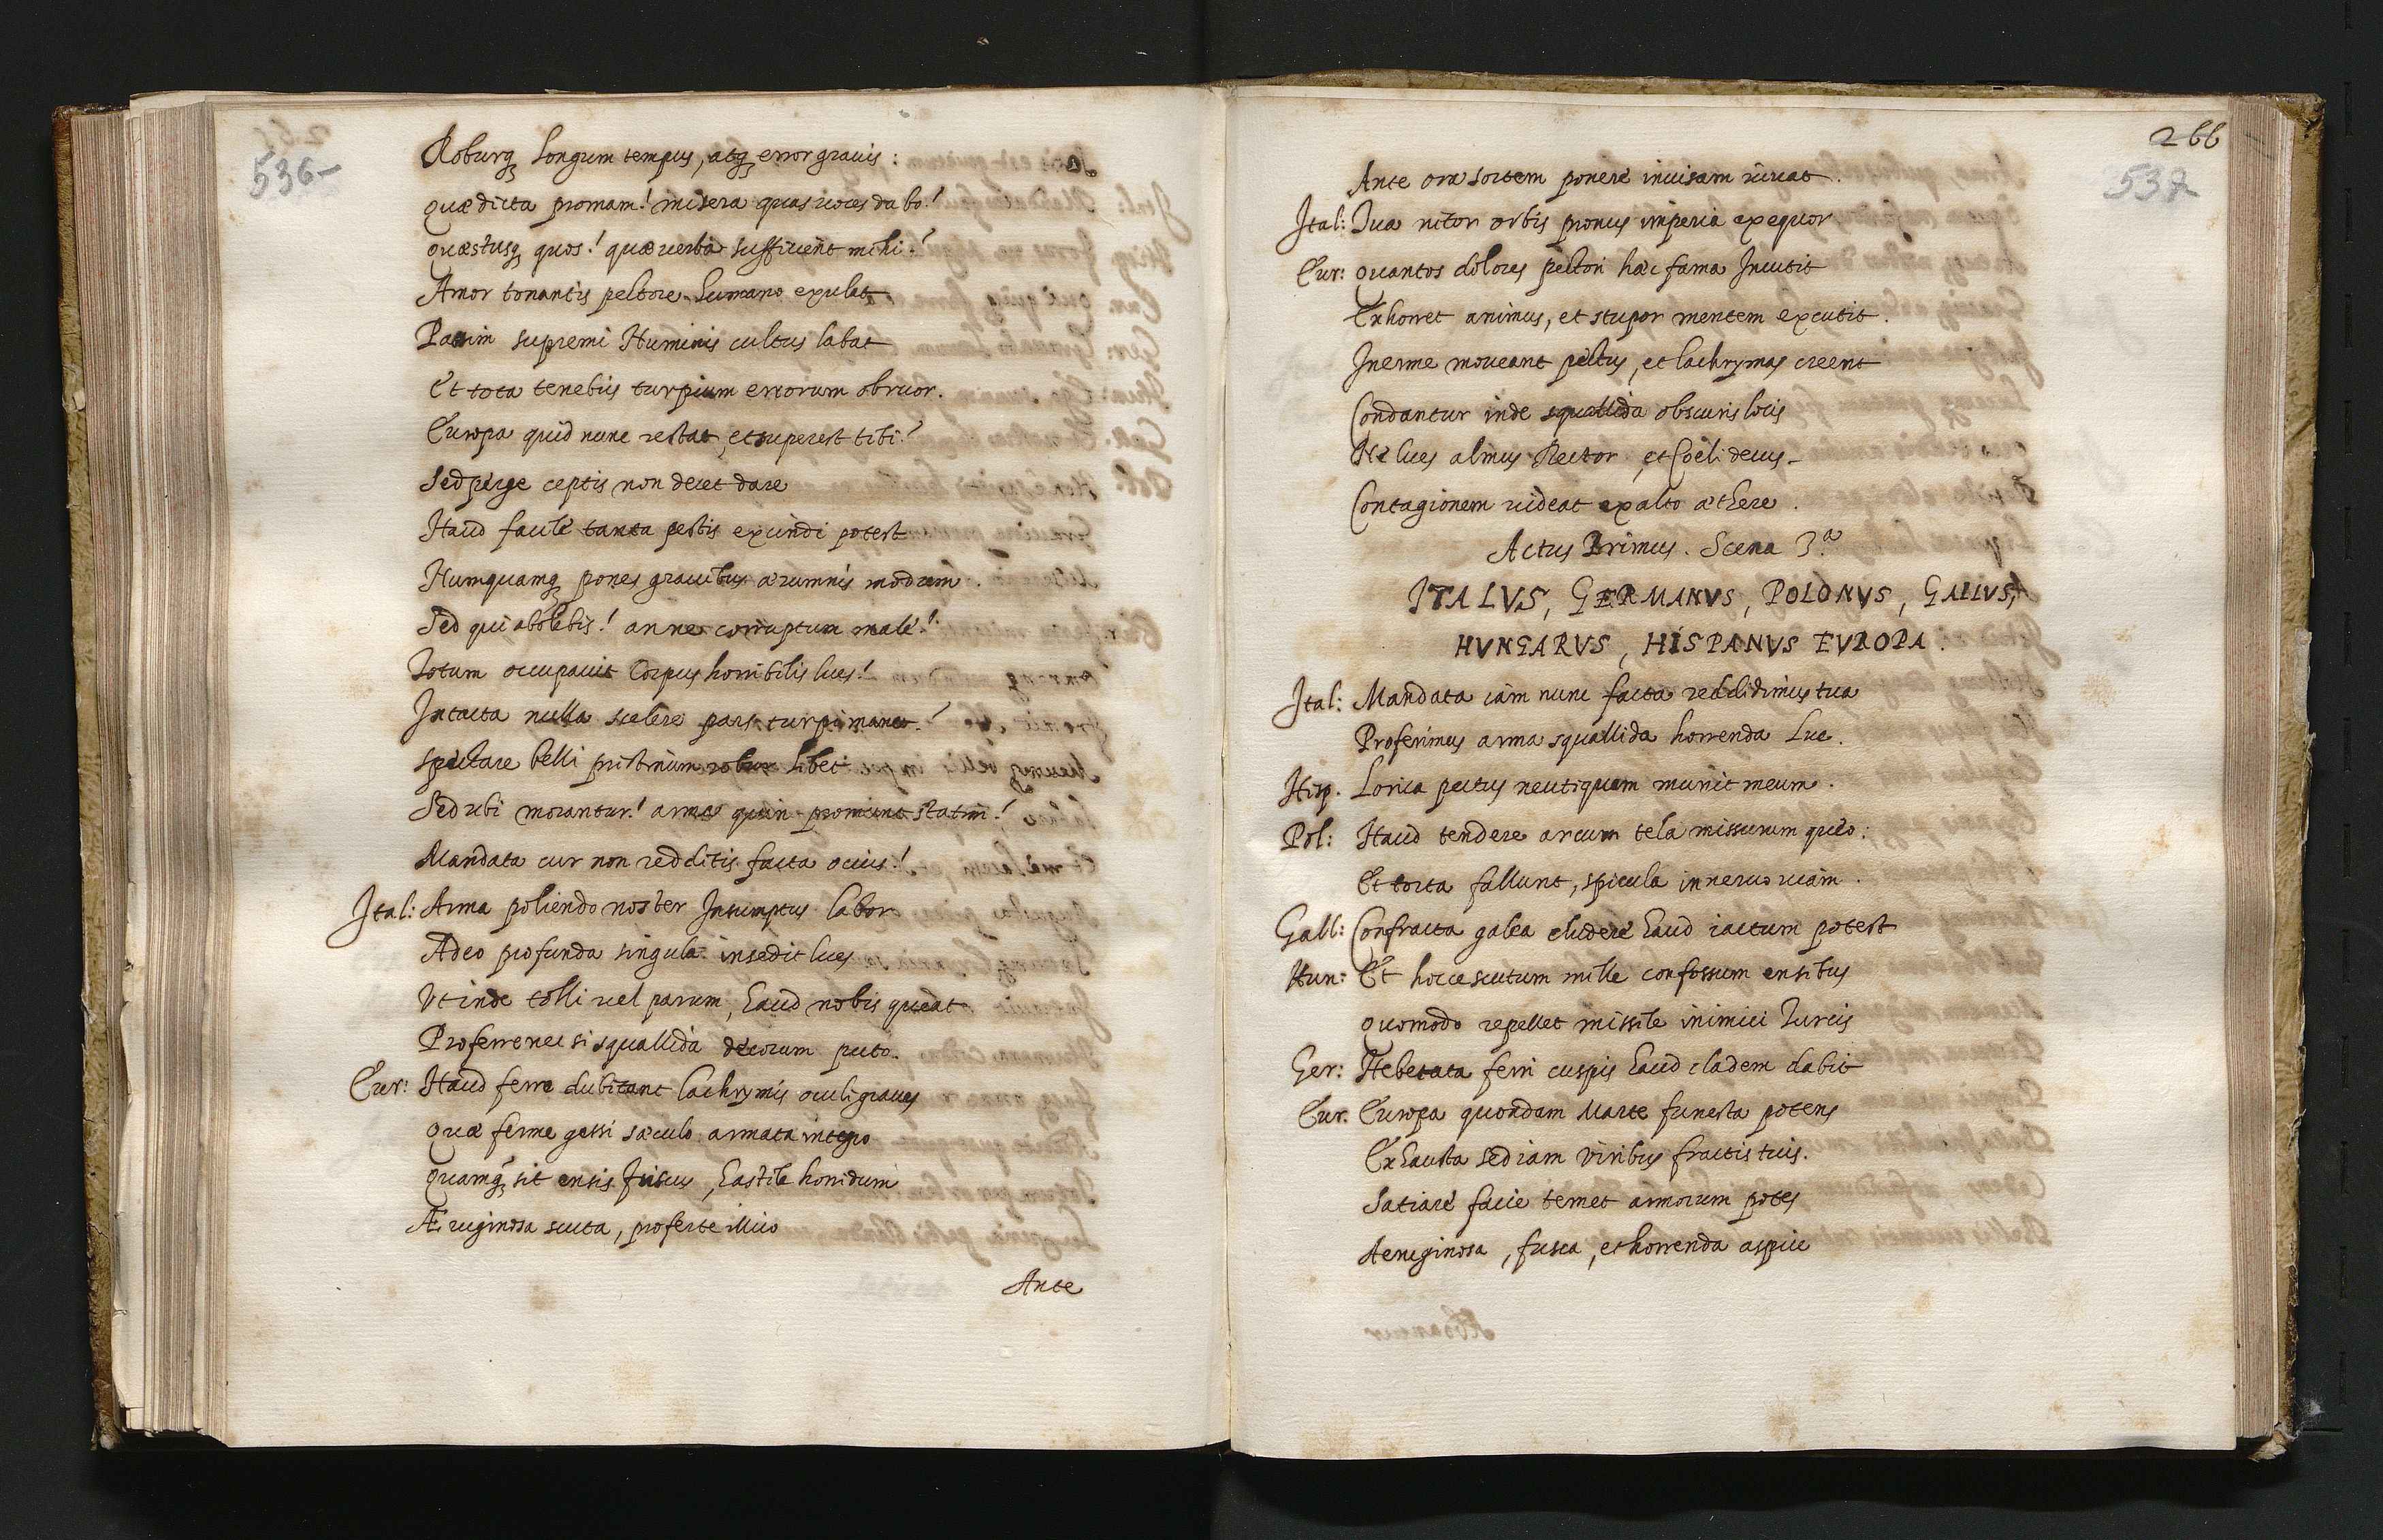 536
Roburq; longum tempus, atq; error grauis:
Quæ dicta promam! misera quas uoces dabo!
Quæstusq; quos! quæ uerba sufficient mihi!
Amor tonantis pectore humano exulat
Passim supremi Numinis cultus labat
Et tota tenebris turpium errorum obruor.
Europa quid nunc restat, et superest tibi?
Sed perge ceptis non decet dare
Haud facilè tanta pestis excindi potest
Numquamq; pones grauibus ærumnis modum.
Sed qui abolebis! anne corruptum malè!
Totum occupauit Corpus horribilis lues!
Intacta nulla scelere pars turpi manet!
Spectare belli pristinum robur libet
Sed ubi morantur! arma quin promunt statim!
Mandata cur non redditis facta ocius!
Ital: Arma poliendo noster Insumptus labor
Adeo profunda singula insedit lues
Vt inde tolli uel parum, haud nobis queat
Proferre nec si squallida decorum puto.
Eur: Haud ferre dubitant lachrymis oculi graues
Quæ ferme gessi sæculo armata integro
Quamq; sit ensis fuscus, hastile horridum
Æruginosa scuta, proferte illico
Ante
266
537
Ante ora sortem ponere inuisam iuuat.
Ital: Tua nitor orbis pronus imperia exequor
Eur: Quantos dolores pectori hæc fama Incutit
Exhorret animus, et stupor mentem excutit.
Inerme moueant pectus, et lachrymas creent
Condantur inde squallida obscuris locis
Ne lues almus Rector et Coeli decus
Contagionem uideat ex alto æthere.
Actus Primus. Scena 3.a
ITALVS, GERMANVS, POLONVS, GALLVS,
HVNGARVS, HISPANVS EVROPA.
Ital: Mandata iam nunc facta reddidimus tua
Proferimus arma squallida horrenda Lue.
Hisp. Lorica pectus neutiquam munit meum.
Pol: Haud tendere arcum tela missurum queo:
Et torta fallunt, spicula in neruo uiam.
Gall: Confracta galea eludere haud iactum potest
Hun: Et hocce scutum mille confossum ensibus
Quomodo repellet missile inimici Turcis
Ger: Hebetata ferri cuspis haud cladem dabit
Eur. Europa quondam Marte funesta potens
Exhausta sed iam Viribus fractis tuis.
Satiare facie temet armorum potes
Aeruginosa, fusca, et horrenda aspice